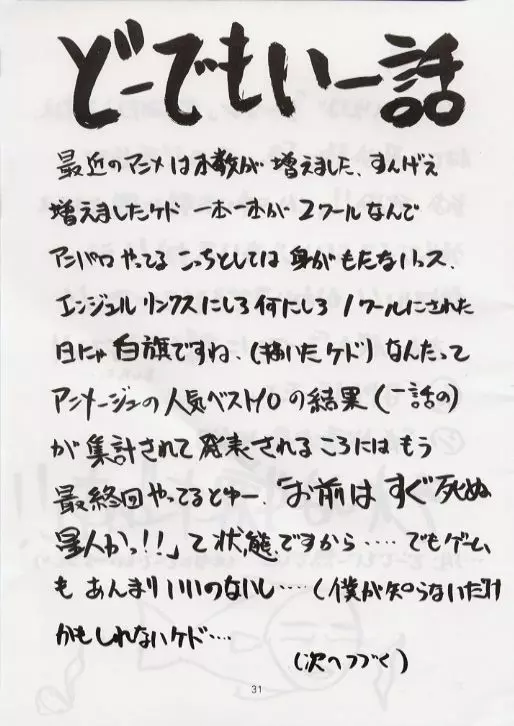 どーでもいー話
最近のアニメは本数が増えました、すんげえ
増えましたケド 一本一本が2クールなんで
アニパロやってる こっちとしては 身がもたないっス、
エンジェルリンクスにしろ何にしろ 1クールにされた
日にゃ 白旗ですね、(描いたケド) なんたって
アニメージュの人気ベスト10の結果 (一話の)
が集計されて発表されるころには もう
最終回やってるとゆー、「お前は すぐ死ぬ
星人かっ!!」て状態ですから‥‥ でもゲーム
も あんまりいいのないし‥‥ (僕が知らないだけ
かもしれないケド‥‥
(次へつづく)
31